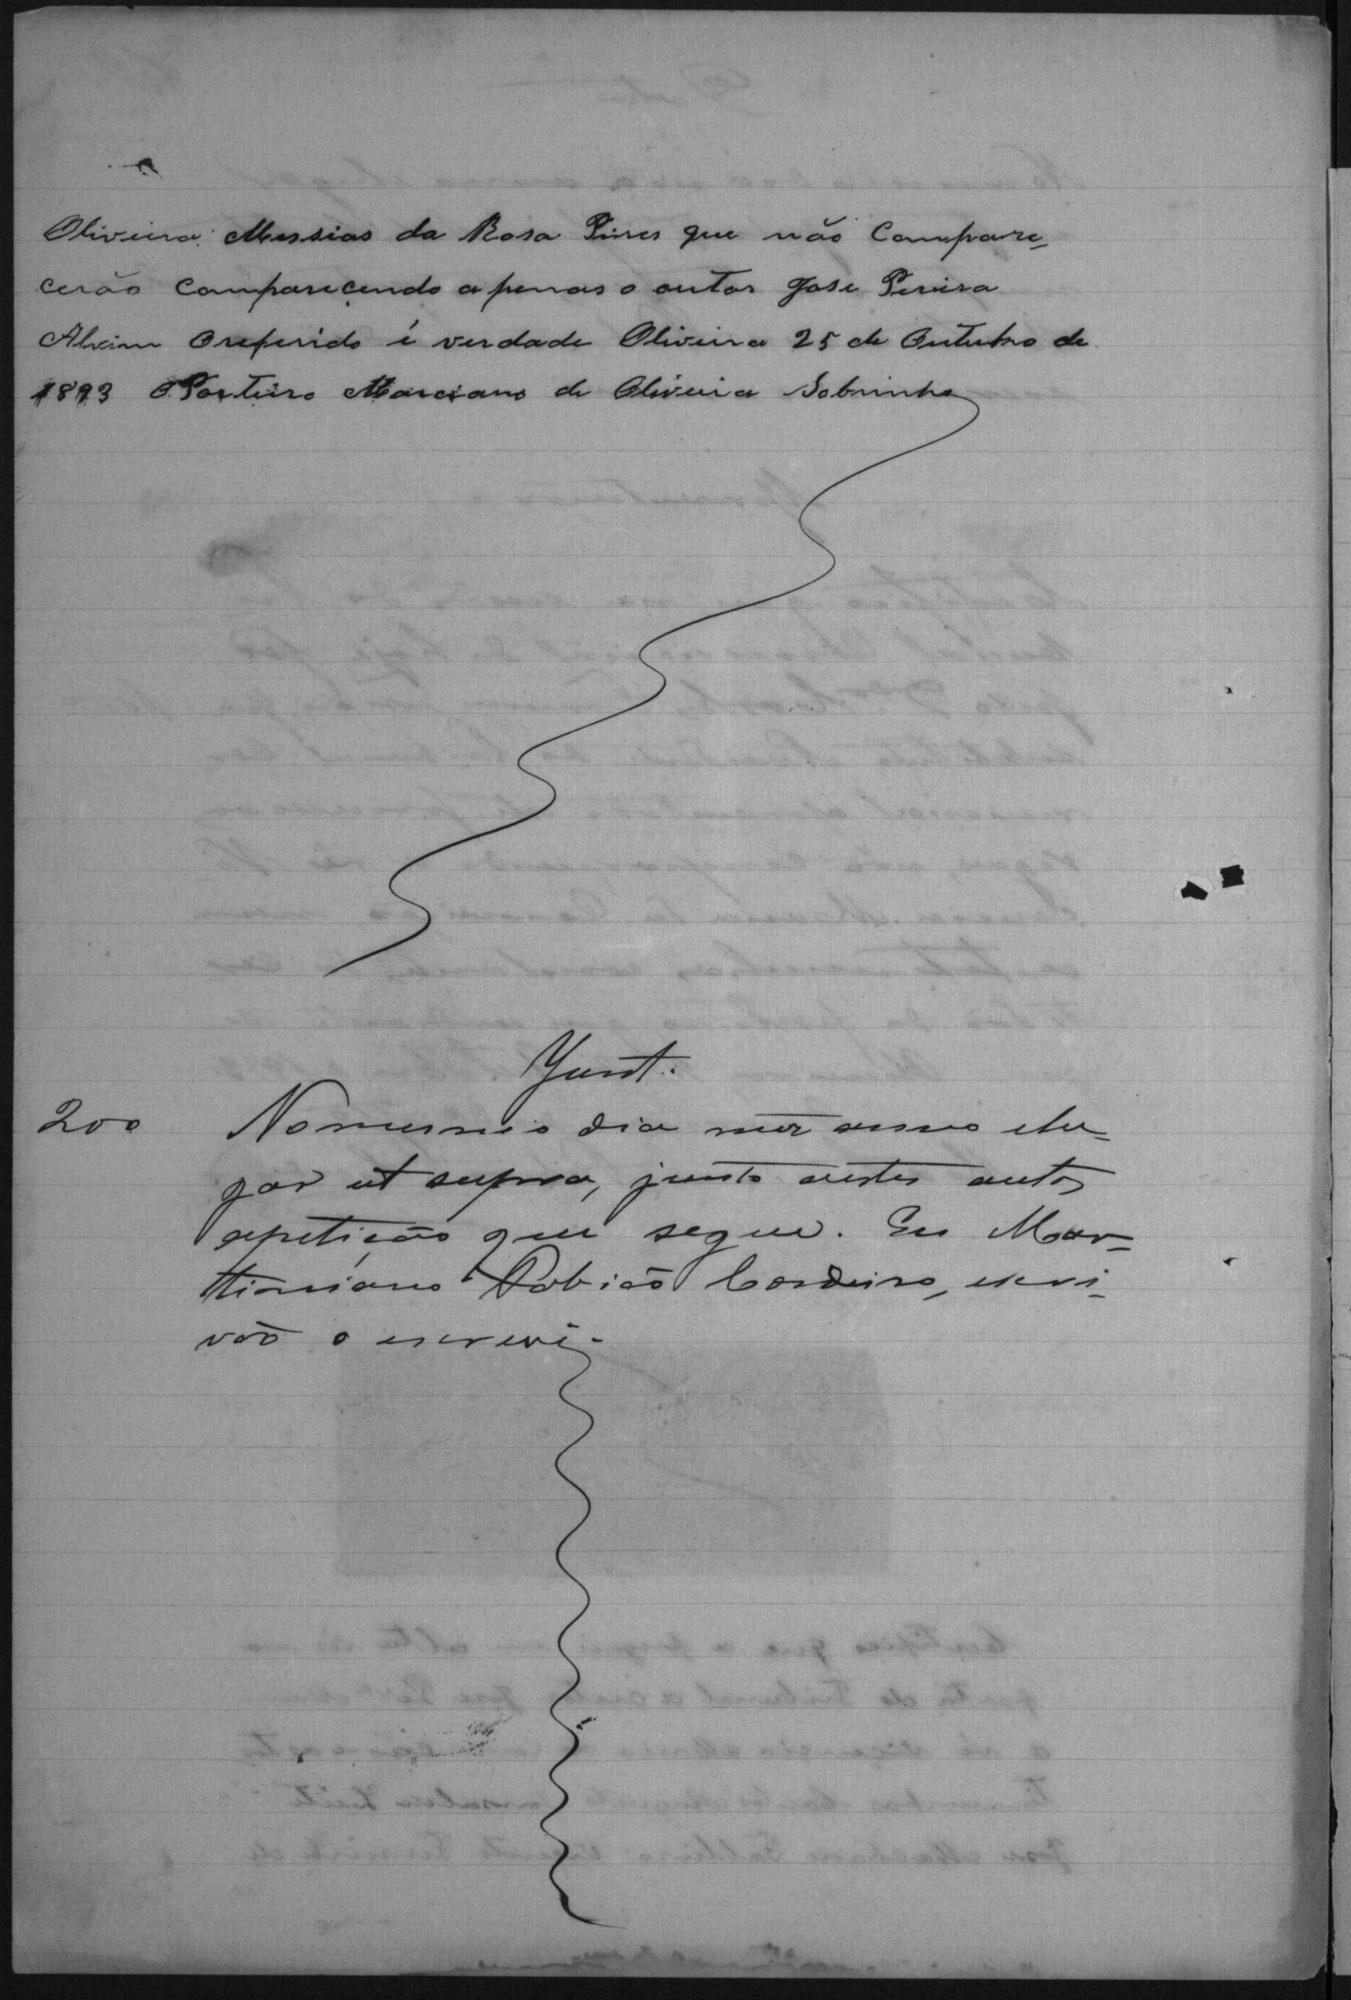 Oliveira Messias da Rosa Pires que não Compare-
cerão comparecendo apenas o autor José Pereira
Alvim O referido é verdade Oliveira 25 de Outubro de
1893 O Porteiro Marciano de Oliveira Sobrinho
Junt.
200 No mesmo dia mez anno e lu-
gar ut supra, junto a estes autos
a petição que segue. Eu Mar-
Cordeiro, escri-
vão o escrevi.